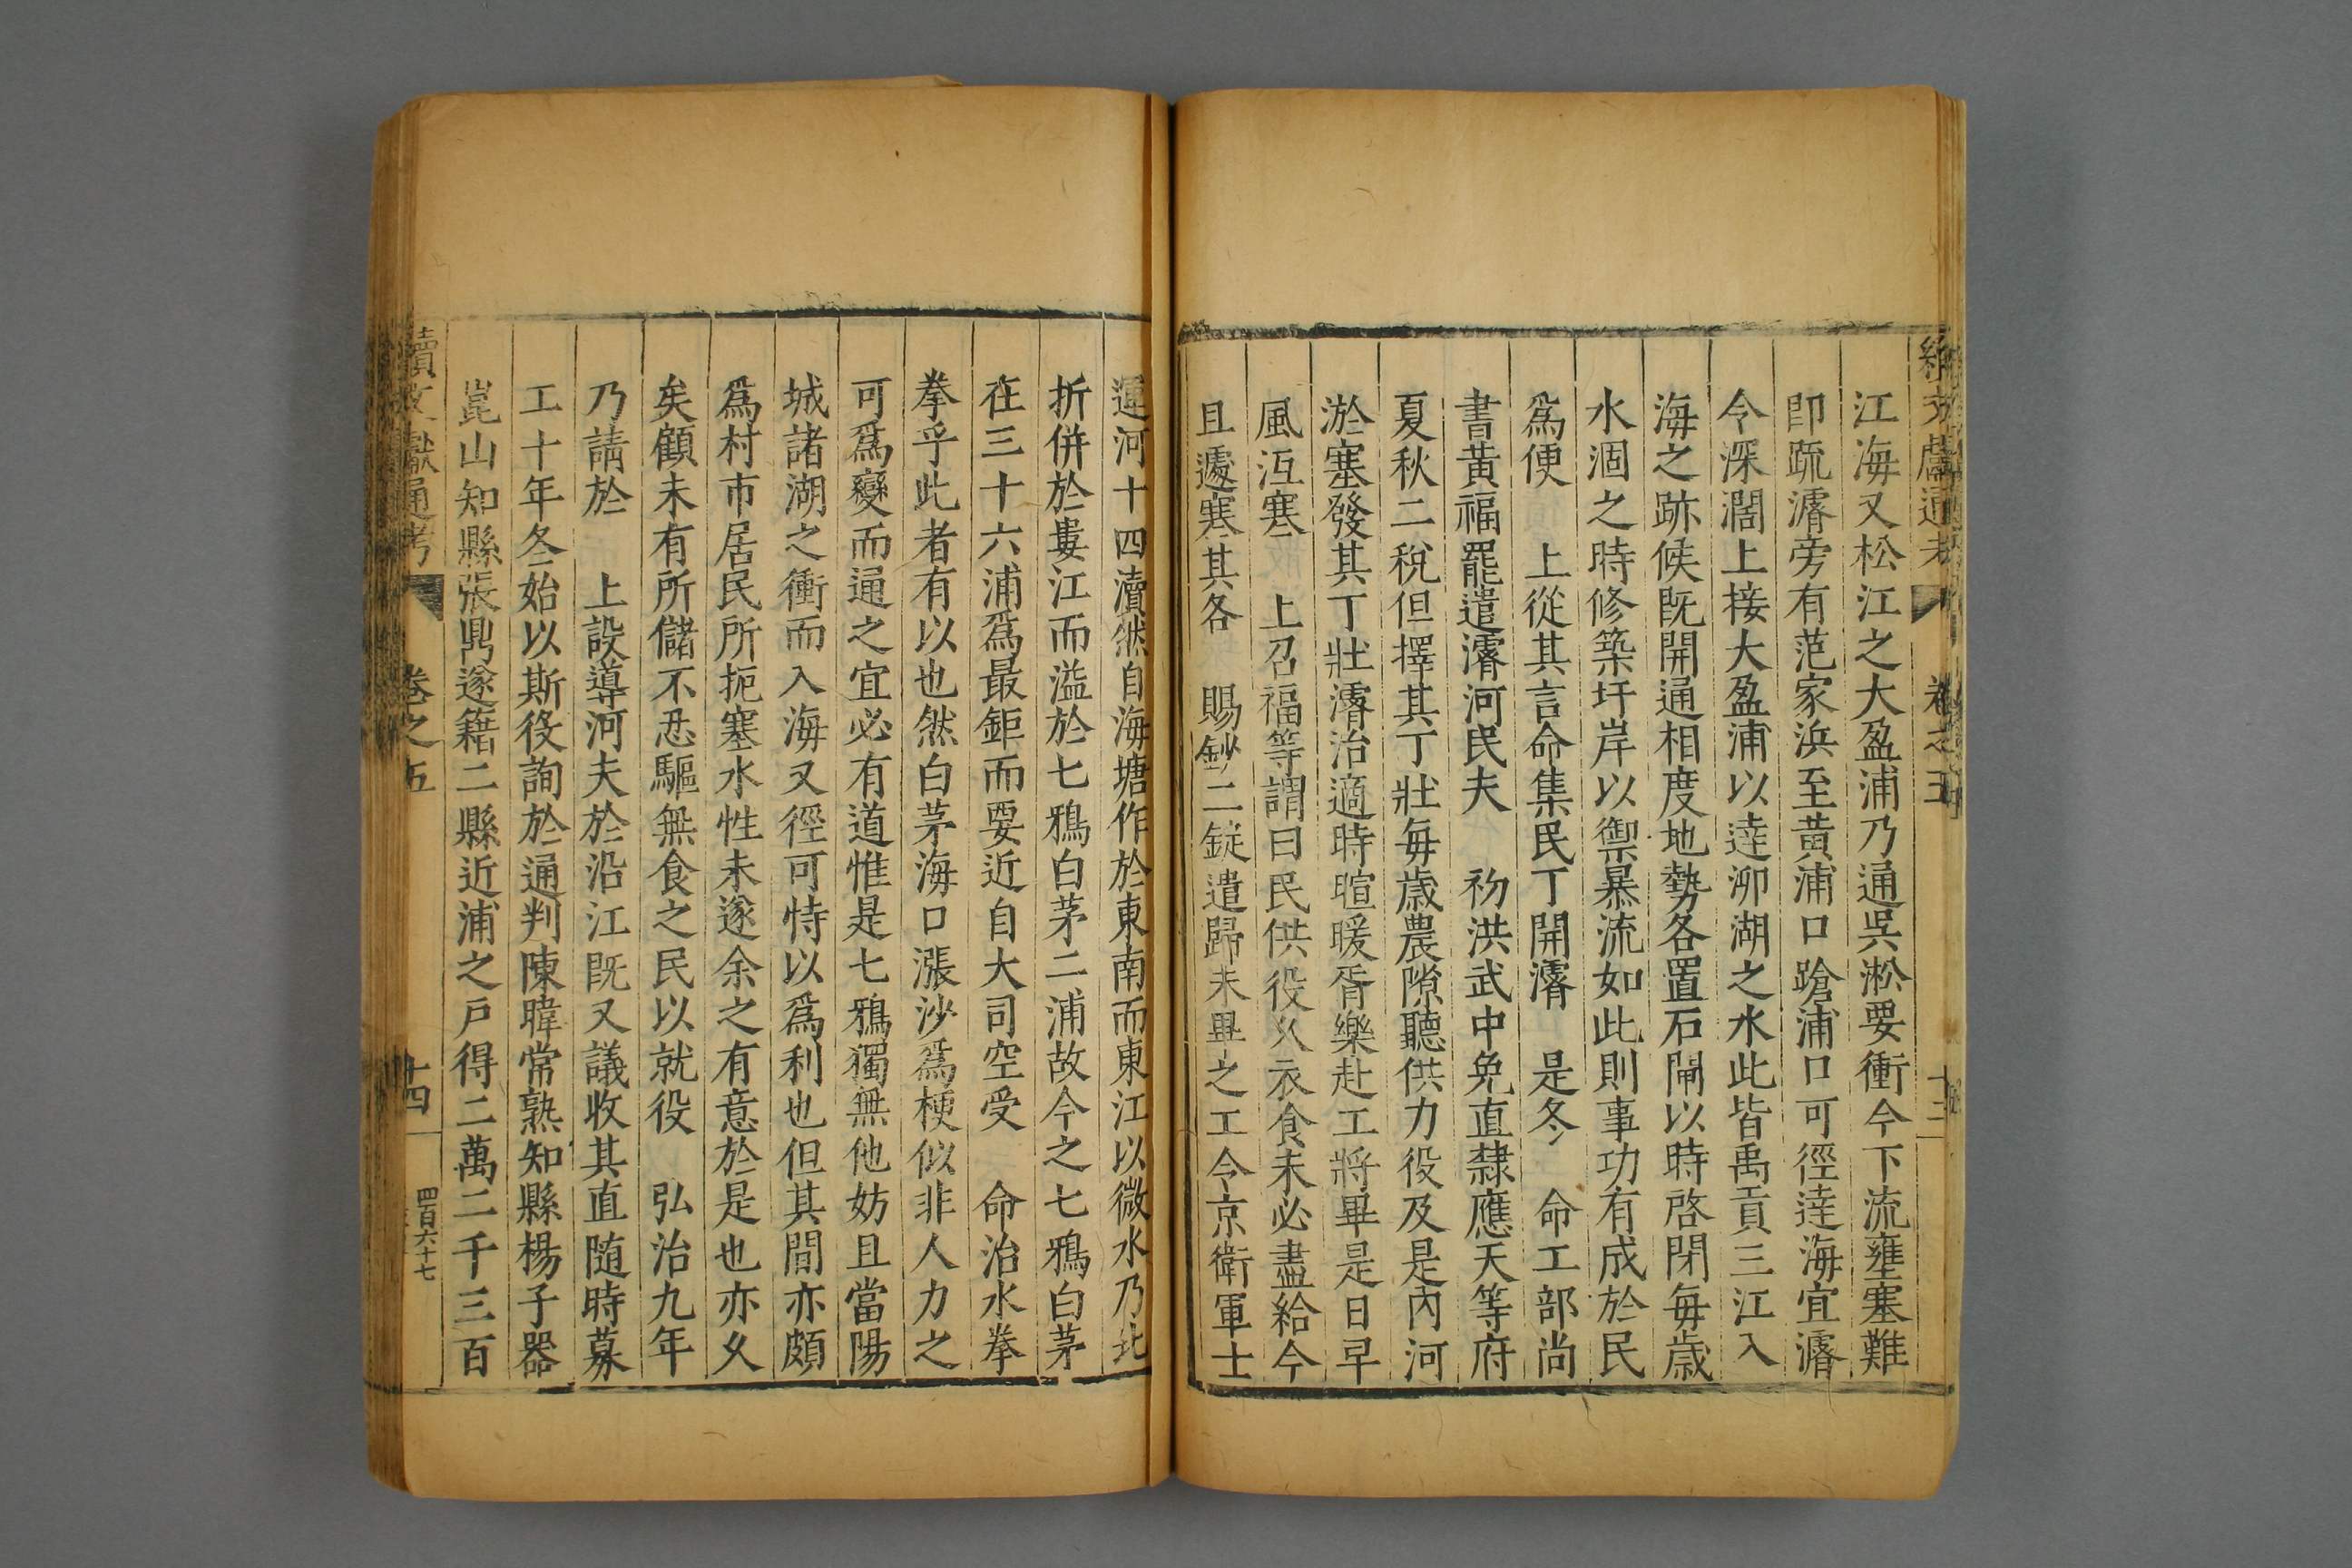 續文獻通考 卷之五 十三
江海又松江之大盈浦乃通吳淞要衝今下流壅塞難
卽疏濬旁有范家浜至黃浦口蹌浦口可徑達海宜濬
令深濶上接大盈浦以達泖湖之水此皆禹貢三江入
海之跡候旣開通相度地勢各置石閘以時啓閉每歲
水涸之時修築圩岸以禦暴流如此則事功有成於民
爲便 上從其言命集民丁開濬 是冬 命工部尚
書黃福罷遣濬河民夫 初洪武中免直隸應天等府
夏秋二稅但擇其丁壯每歲農隙聽供力役及是內河
淤塞發其丁壯濬治適時暄暖胥樂赴工將畢是日早
風沍寒 上召福等謂曰民供役久衣食未必盡給今
且遽寒其各 賜鈔二錠遣歸未畢之工令京衛軍士
運河十四瀆然自海塘作於東南而東江以微水乃北
折併於婁江而溢於七鴉白茅二浦故今之七鴉白茅
在三十六浦爲最鉅而要近自大司空受 命治水拳
拳乎此者有以也然白茅海口漲沙爲梗似非人力之
可爲變而通之宜必有道惟是七鴉獨無他妨且當陽
城諸湖之衝而入海又徑可恃以爲利也但其間亦頗
爲村市居民所扼塞水性未遂余之有意於是也亦久
矣顧未有所儲不忍驅無食之民以就役 弘治九年
乃請於 上設導河夫於沿江旣又議收其直随時募
工十年冬始以斯役詢於通判陳暐常熟知縣楊子器
崑山知縣張鼎遂籍二縣近浦之戶得二萬二千三百
續文獻通考 卷之五 十四 四百六十七